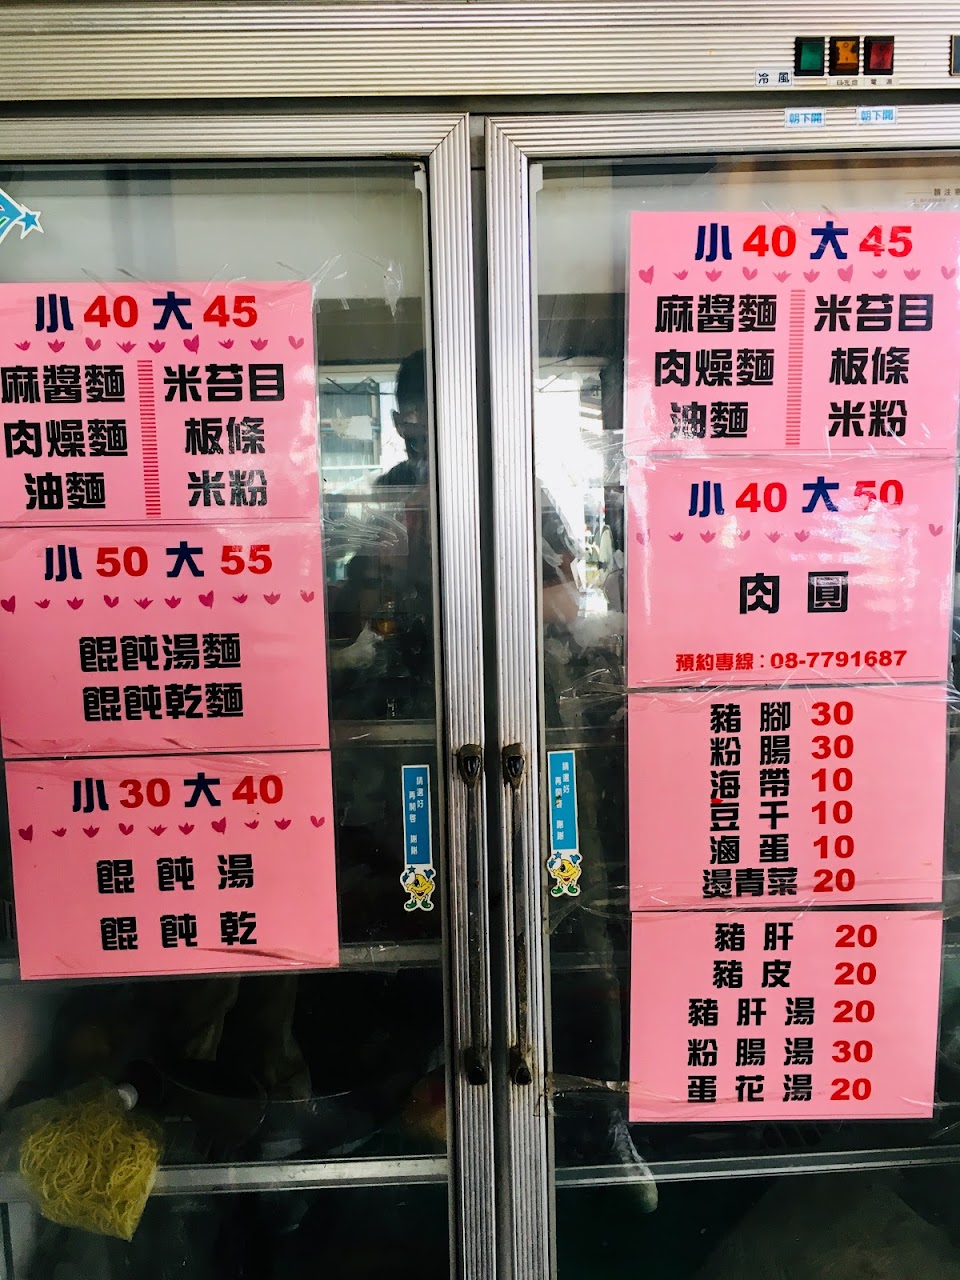 冷風
朝下開 朝下開
小 40 大 45
麻醬麵 米苔目
肉燥麵 板條
油麵 米粉
小 50 大 55
餛飩湯麵
餛飩乾麵
小 30 大 40
餛飩湯
餛飩乾
請選好
再開啓 謝謝
請選好
再開啓 謝謝
小 40 大 45
麻醬麵 米苔目
肉燥麵 板條
油麵 米粉
小 40 大 50
肉圓
預約專線：08-7791687
豬腳 30
粉腸 30
海帶 10
豆干 10
滷蛋 10
燙青菜 20
豬肝 20
豬皮 20
豬肝湯 20
粉腸湯 30
蛋花湯 20